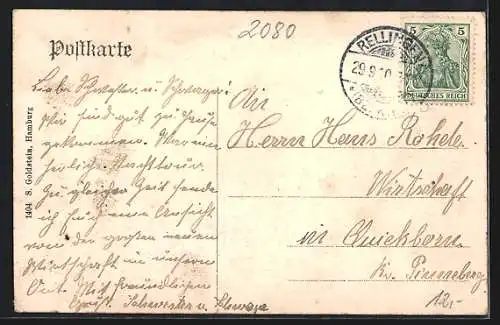 2080
Postkarte
Liebe Schwester u. Schwager!
Wir sind gut zu Hause
gekommen. War eine
herrliche Nachttour.
Zu gleicher Zeit sende
ich Euch eine Ansicht
von der großen neuen
Wirtschaft in unsern
Ort. Mit freundlichen
Gruß. Schwester u. Schwager
1404 S. Goldstein, Hamburg
RELLINGEN
29.9.10
5 5
DEUTSCHES REICH
An
Herrn Hans Rohde
Wirtschaft
in Quickborn.
Kr. Pinneberg
12.-